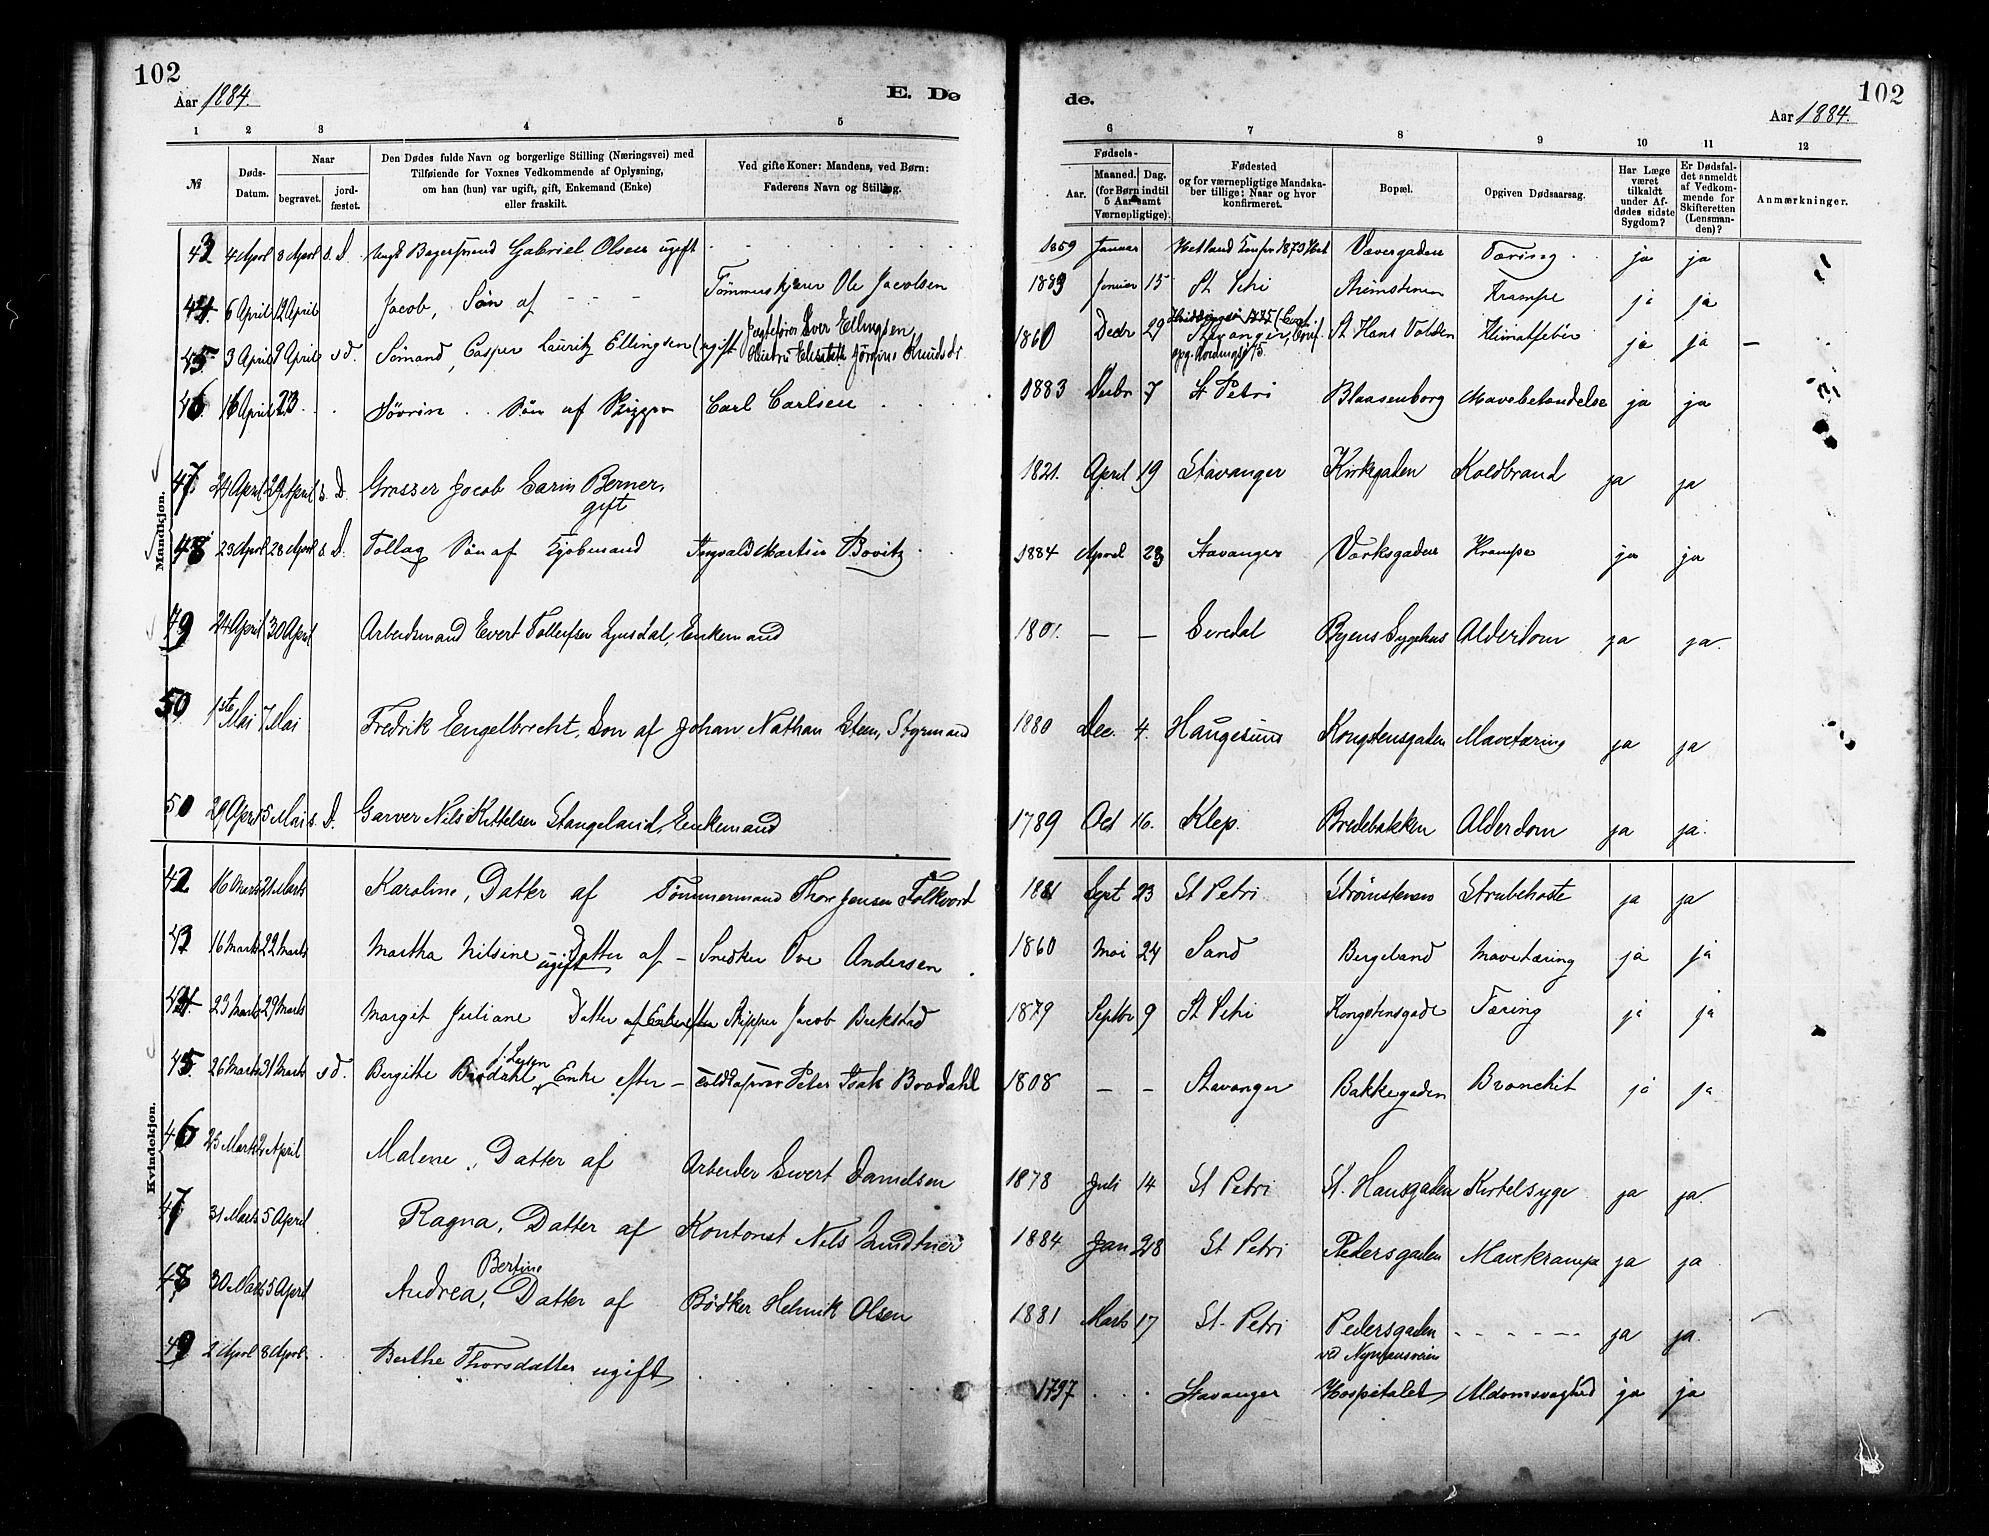 102
Aar 1884.
E. Dø
de.
102
Aar 1884.
1 2 3 4 5 6 7 8 9 10 11 12
№
Døds-Datum.
Naar
begravet.
jord-fæstet.
Den Dødes fulde Navn og borgerlige Stilling (Næringsvei) med
Tilføiende for Voxnes Vedkommende af Oplysning,
om han (hun) var ugift, gift, Enkemand (Enke)
eller fraskilt.
Ved gifte Koner: Mandens, ved Børn:
Faderens Navn og Stilling.
Fødsels-
Aar.
Maaned. Dag.
(for Børn indtil
5 Aar samt
Værnepligtige).
Fødested
og for værnepligtige Mandska-
ber tillige: Naar og hvor
konfirmeret.
Bopæl.
Opgiven Dødsaarsag.
Har Læge
været
tilkaldt
under Af-
dødes sidste
Sygdom?
Er Dødsfal-
det anmeldt
af Vedkom-
mende for
Skifteretten
(Lensman-
den)?
Anmærkninger.
Mandkjøn.
43 4 April 8 April s. D. Gabriel Olsen ugift 1859 Januar Hetland 1873 Vævergaden Tæring ja ja
44. 6 April 12 April Jacob, Søn af Ole Jacobsen 1883 Januar 15 St Petri Strømstenen Krampe ja ja
45 3 April 9 April s d. Sømand, Casper Lauritz Ellingsen (ugift Iver Ellingsen 1860 Decbr 29 Stavanger St Hans Volden Klimatfeber ja ja
46 16 April 23 Søvrin Søn af Skipper Carl Carlsen 1883 Decbr 7 St Petri Blaasenborg Mavebetændelse ja ja
47 24 April 29 April s. D. Grosser Jacob Berner, gift 1821. April 19 Stavanger Kirkgaden Koldbrand ja ja
48 23 April 28 April s D. Tollag Søn af Kjøbmand Ingvald Martin Bovitz 1884 April 23 Stavanger Værksgaden Krampe ja ja
49 24 April 30 April Arbeidsmand Evert Tollefsen Lyusdal, Enkemand 1801. — — Byens Sygehus Alderdom ja ja
50 1ste Mai 7 Mai Fredrik Engelbrecht, Søn af Johan Nathan Steen, Styrmand 1880 Dec. 4. Haugesund Kongstensgaden Mavetæring ja ja
50 29 April 5 Mai s. D. Garver Nils Kittelsen Stangeland, Enkemand 1789 Oct 16. Klep. Bredebakken Alderdom ja ja
Kvindekjøn.
42 16 Marts 21 Marts Karoline, Datter af Tømmermand Thor Jensen Folkvord 1881 Sept 23 St Petri Strømstenen Strubehoste ja ja
43 16 Marts 22 Marts Martha Nilsine ugift Datter af – Snedker Ove Andersen 1860 Mai 24 Sand Bergeland Mavetæring ja ja
44. 23 Marts 29 Marts Margit Juliane Datter af Skipper Jacob Bekstad 1879 Septbr 9 St Petri Kongstensgade Tæring ja ja
45. 26 Marts 31 Marts s d. Bergitte Brodahl Enke efter – Peter Isak Brodahl 1808 — — Stavanger Bakkegaden Bronchit ja ja
46 25 Marts 2 April Malene, Datter af Arbeider Sivert Danielsen 1878 Juli 14 St Petri St. Hansgaden Kirtelsyge ja ja
47 31 Marts 5 April Ragna, Datter af Kontorist Nils Lindtner 1884 Jan 28 St Petri Pedersgaden Mavekrampe ja ja
48 30 Marts 5 April Andrea Bertine, Datter af Bødker Henrik Olsen 1881 Marts 17 St. Petri Pedersgaden ja ja
49 2 April 8 April Berthe Thorsdatter ugift 1797 Stavanger Hospitalet ja ja